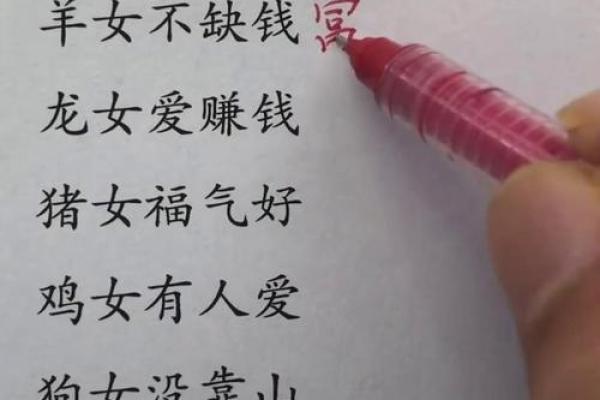 羊女不缺钱 富
龙女爱赚钱
猪女福气好
鸡女有人爱
狗女没靠山